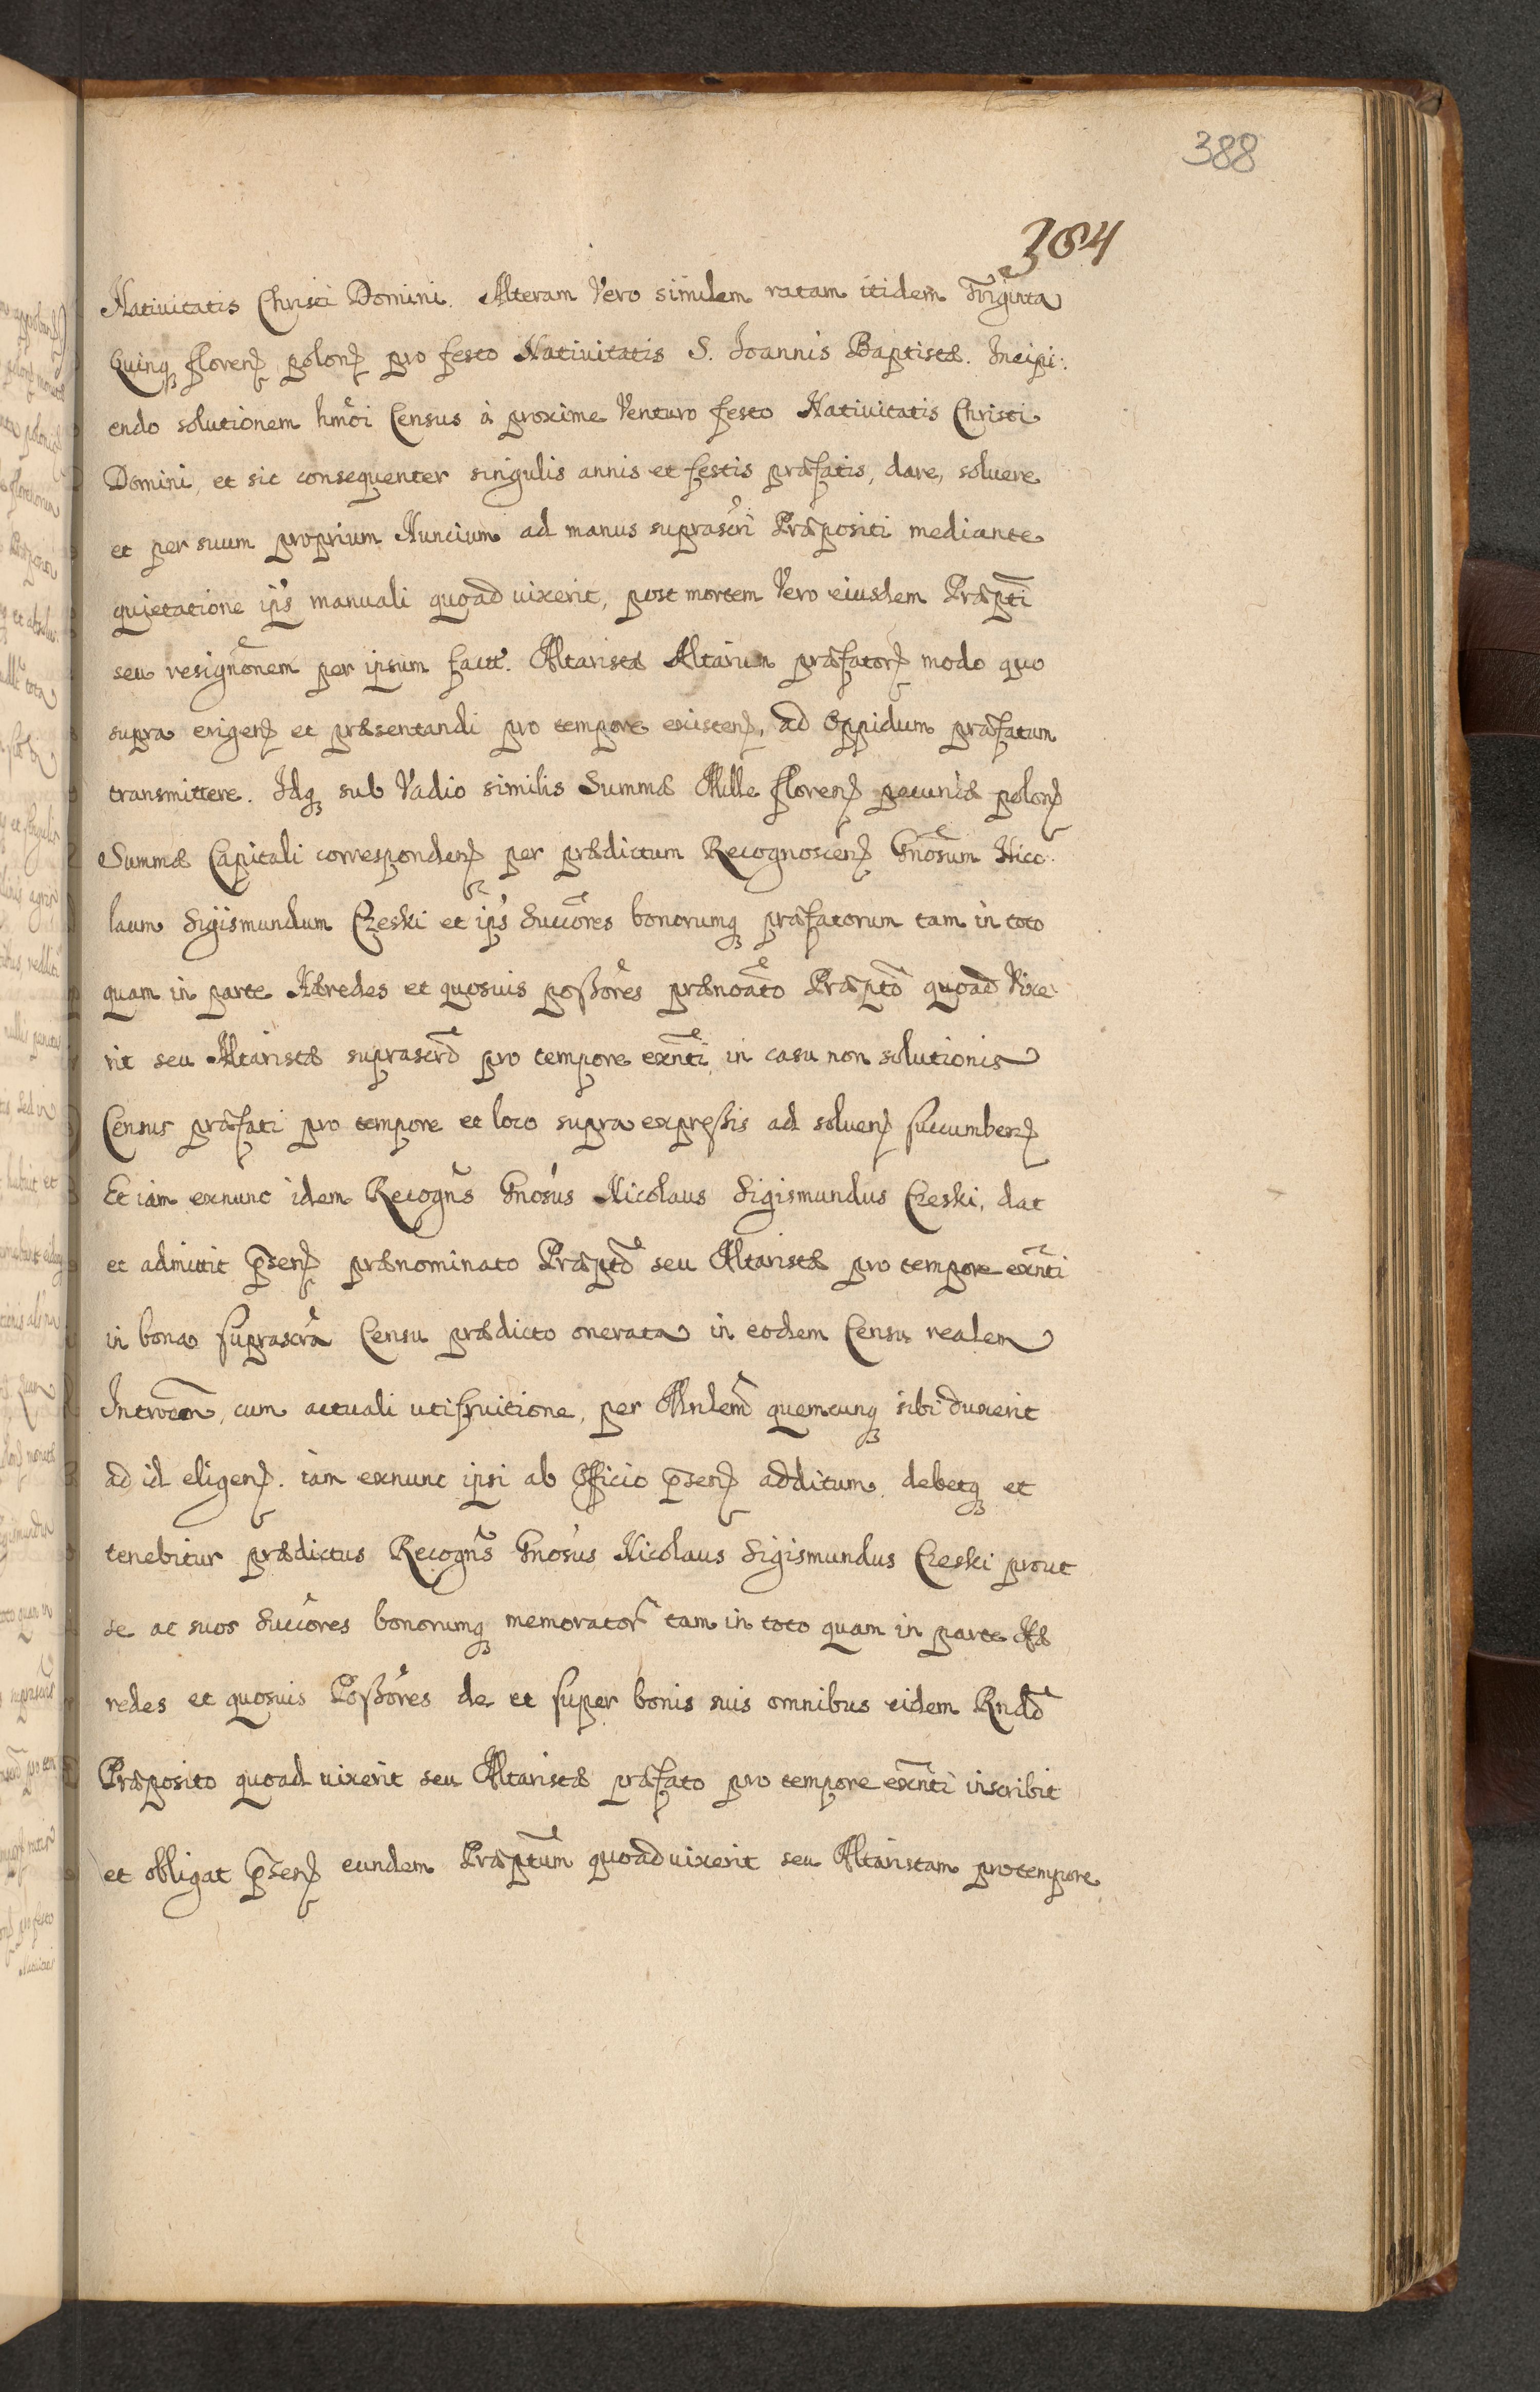 388
384
Natiuitatis Christi Domini. Alteram Vero similem ratam itidem Triginta
Quinqꝫ florenꝭ polonꝭ pro festo Natiuitatis S. Joannis Baptistæ. Incipi:
endo solutionem hmōi Census à proxime Venturo festo Natiuitatis Christi
Domini, et sic consequenter singulis annis et festis præfatis, dare, soluere
et per suum proprium Nuncium ad manus suprascri Præpositi mediante
quietatione ips manuali quoad uixerit, post mortem Vero eiusdem Præpti
seu resignōnem per ipsum factt. Altaristæ Altarium præfatorꝭ modo quo
supra erigenꝭ et præsentandi pro tempore existenꝭ, ad Oppidum præfatum
transmittere. Idqꝫ sub Vadio similis Summæ Mille florenꝭ pecuniæ polonꝭ
Summæ Capitali correspondenꝭ per prædictum Recognoscenꝭ Gnosum Nico
laum Sigismundum Czeski et ips Succores bonorumqꝫ præfatorum tam in toto
quam in parte Hæredes et quosuis poßores prænoāto Præpto quoad Vixe
rit seu Altaristæ suprascro pro tempore exnti, in casu non solutionis
Census præfati pro tempore et loco supra expreßis ad soluenꝭ succumbenꝭ
Et iam exnunc idem Recogns Gnosus Nicolaus Sigismundus Czeski, dat
et admittit p̄senꝭ prænominato Præpto seu Altaristæ pro tempore exnti
in bona suprascra Censu prædicto onerata in eodem Censu realem
Introcem, cum actuali utifruitione, per Mnlem quemcunqꝫ sibi duxerit
ad id eligenꝭ. iam exnunc ipsi ab Officio p̄senꝭ additum. debetqꝫ et
tenebitur prædictus Recogns Gnosus Nicolaus Sigismundus Czeski prout
se ac suos Succores bonorumqꝫ memorator tam in toto quam in parte Hæ
redes et quosuis Poßores de et super bonis suis omnibus eidem Rndo
Præposito quoad uixerit seu Altaristæ præfato pro tempore exnti inscribit
et obligat p̄senꝭ eundem Præptum quoad uixerit seu Altaristam pro tempore